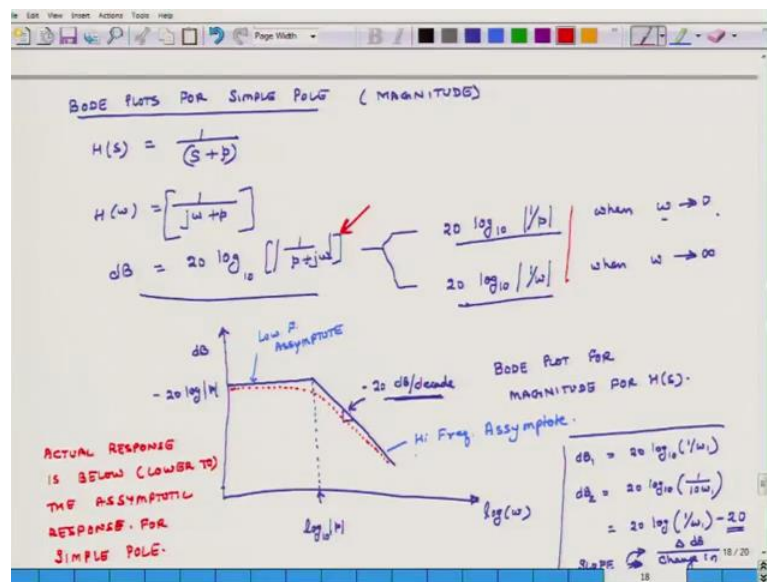 le Edit View Insert Actions Tools Help
Page Width
B I
BODE PLOTS FOR SIMPLE POLE (MAGNITUDE)
H(s) = 1/(s+p)
H(ω) = [1/(jω+p)]
dB = 20 log₁₀ [|1/(p+jω)|]
20 log₁₀ |1/p| when ω → 0.
20 log₁₀ |1/ω| when ω → ∞
dB
LOW F. ASSYMPTOTE
- 20 log|p|
- 20 dB/decade
BODE PLOT FOR
MAGNITUDE FOR H(s).
Hi Freq. Assymptote.
log₁₀|p|
log(ω)
ACTUAL RESPONSE
IS BELOW (LOWER TO)
THE ASSYMPTOTIC
RESPONSE. FOR
SIMPLE POLE.
dB₁ = 20 log₁₀(1/ω₁)
dB₂ = 20 log₁₀(1/10ω₁)
= 20 log(1/ω₁) - 20
SLOPE Δ dB
Change in
18 / 20
18